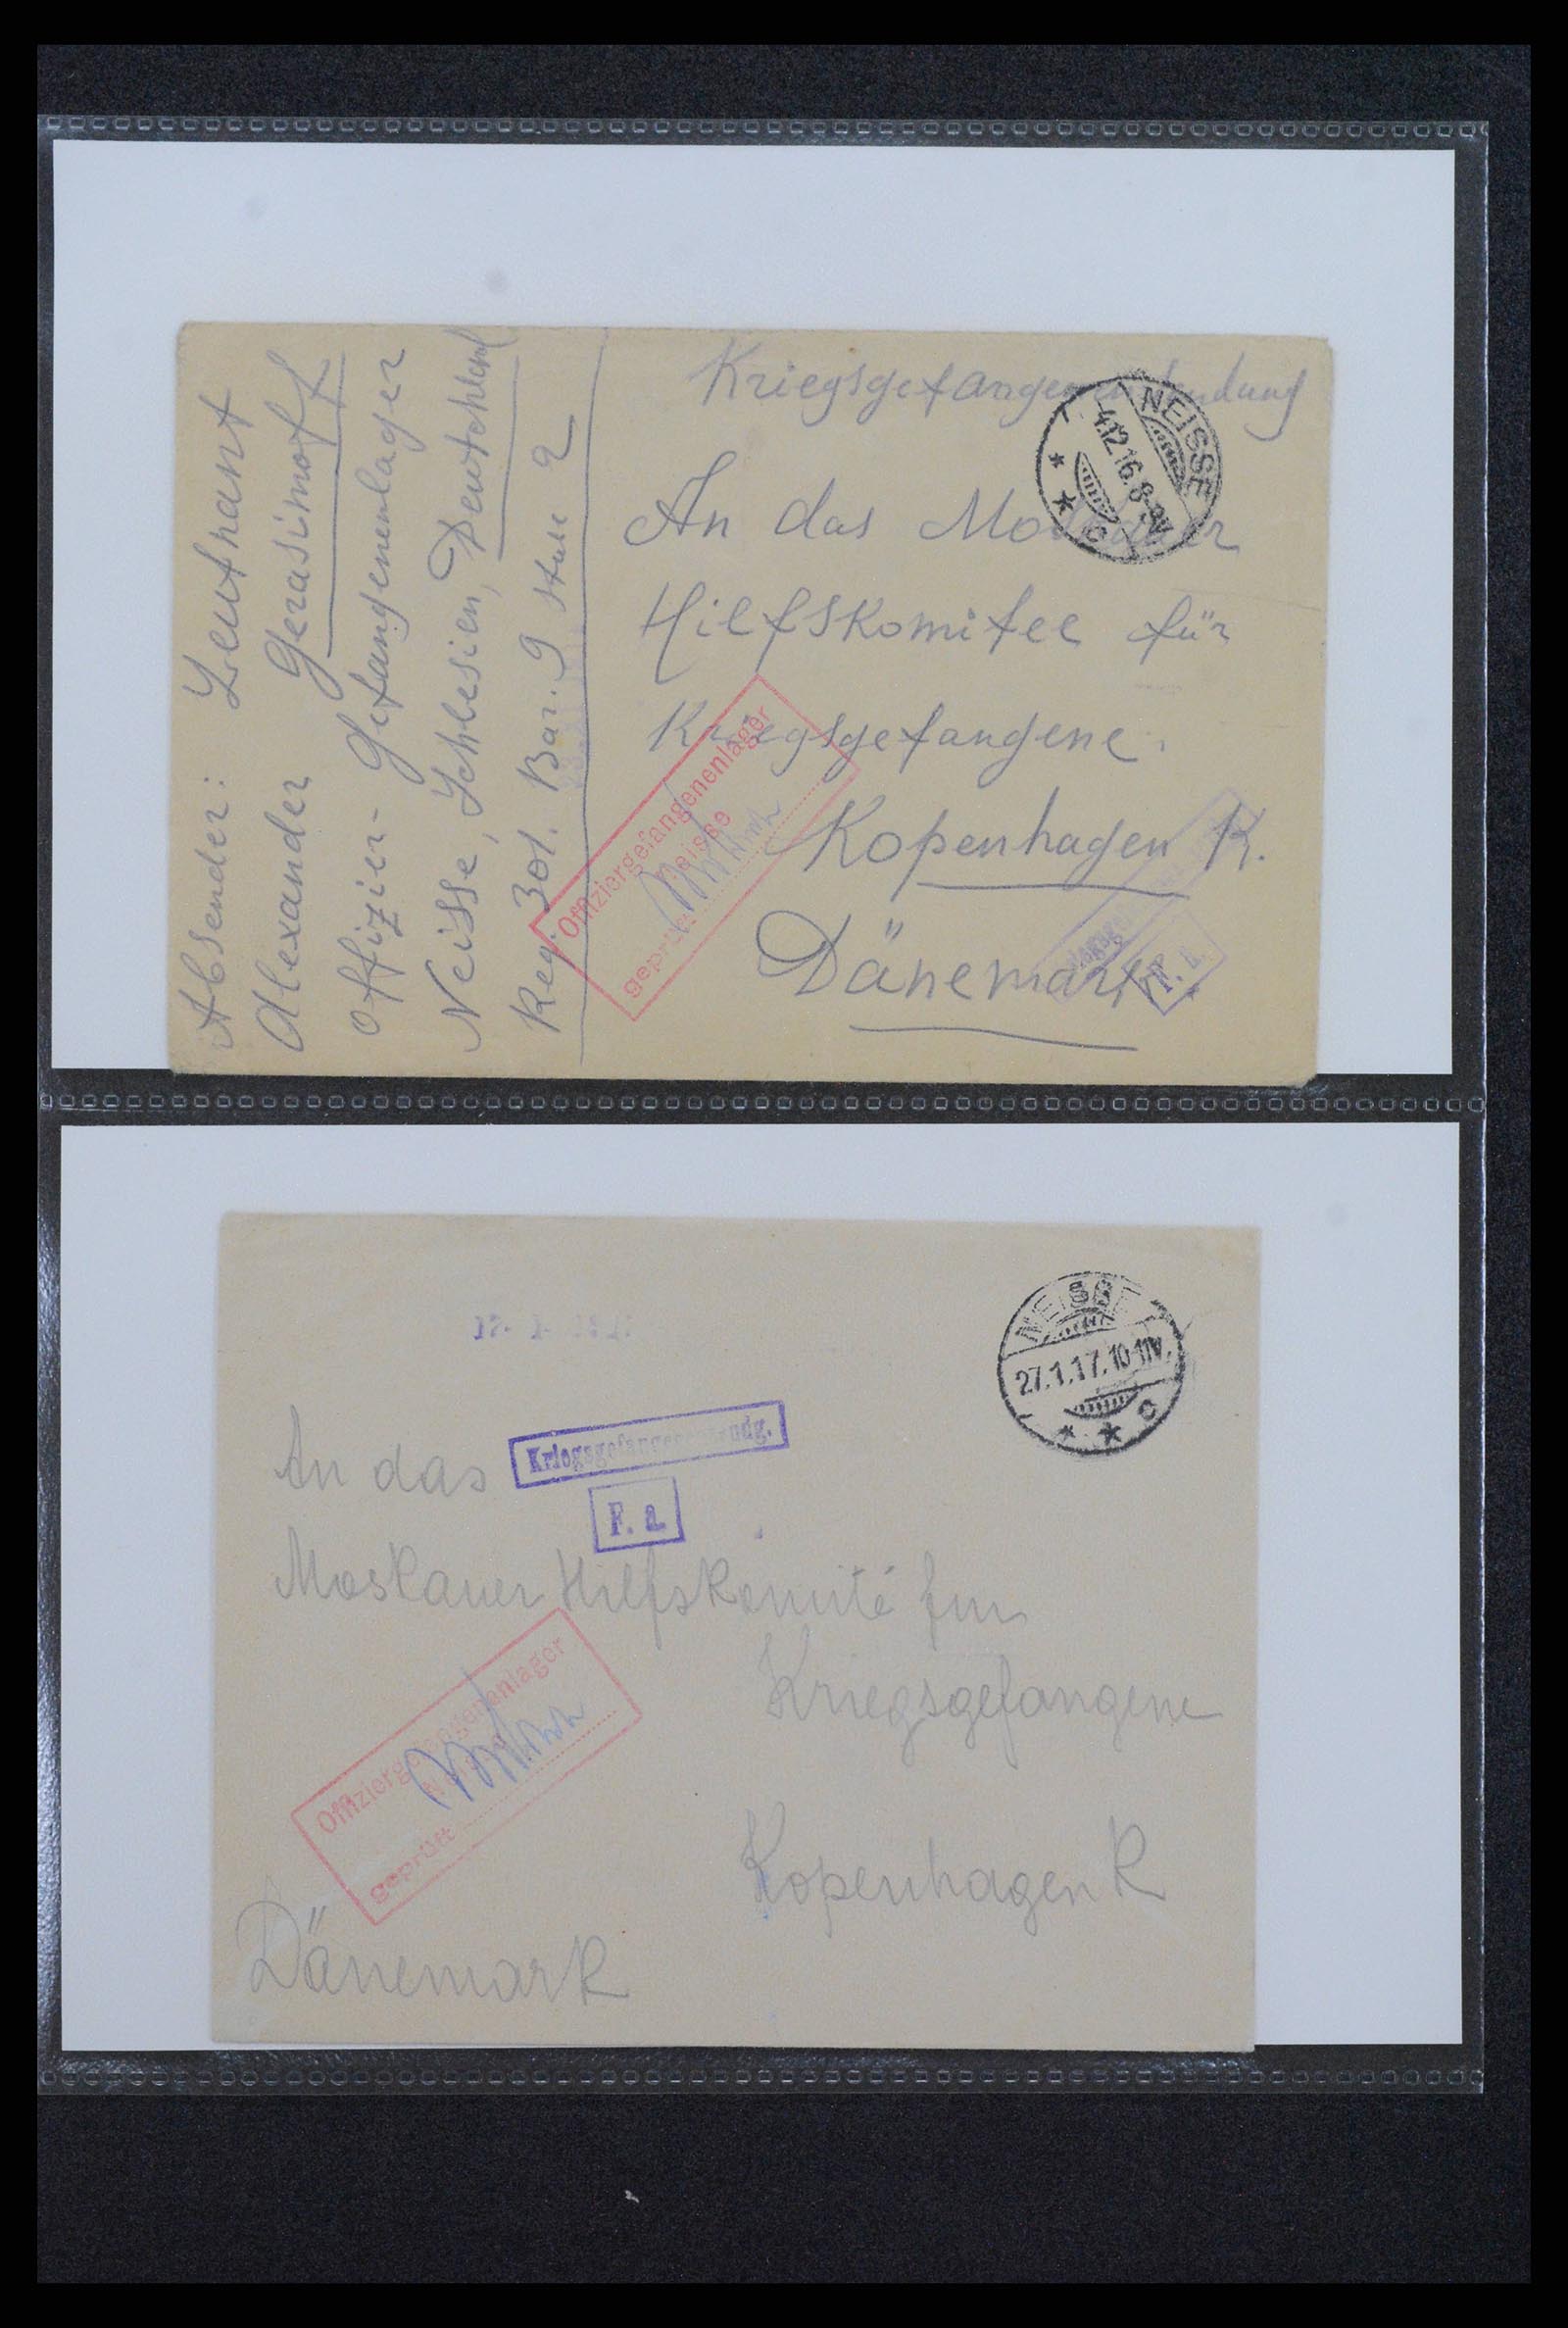 Absender: Leuthant
Alexander Gerasimoff
Offizier-Gefangenenlager
Neisse, Schlesien, Deutschland
Reg. 301. Bar. 9 Stube 2
Kriegsgefangenensendung
An das Moskauer
Hilfskomitee für
Kriegsgefangene.
Kopenhagen K.
Dänemark.
NEISSE
-4.12.16.8-9V.
* * c
Offiziergefangenenlager
Neisse
geprüft
F. a.
NEISSE
27.1.17.10-11V.
* * c
An das
Kriegsgefangenensendg.
F. a.
Moskauer Hilfskomité fur
Kriegsgefangene
Offiziergefangenenlager
Neisse
geprüft
Kopenhagen K
Dänemark